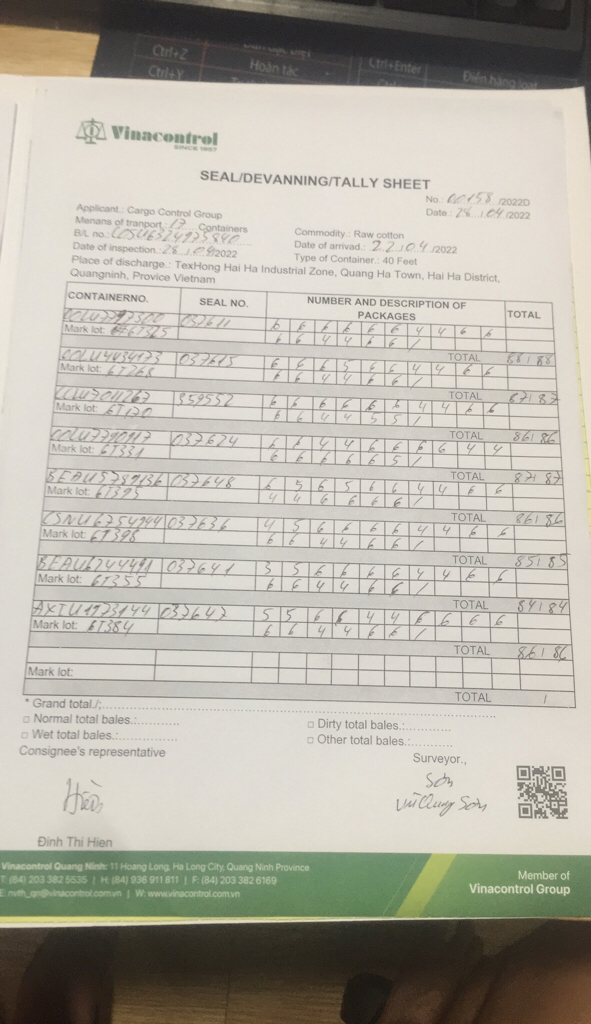 Ctrl+Z
Hoàn tác
Ctrl+Enter
Điền hàng loạt
Ctrl+Y
Vinacontrol
SINCE 1957
SEAL/DEVANNING/TALLY SHEET
No.: 00158 /2022D
Date.: 28 / 04 /2022
Applicant.: Cargo Control Group
Menans of tranport.: 17 Containers
Commodity.: Raw cotton
B/L no.: COSU6324975840
Date of arrived.: 22 / 04 /2022
Date of inspection.: 28 / 04/2022
Type of Container.: 40 Feet
Place of discharge.: TexHong Hai Ha Industrial Zone, Quang Ha Town, Hai Ha District,
Quangninh, Provice Vietnam
CONTAINERNO. SEAL NO. NUMBER AND DESCRIPTION OF PACKAGES TOTAL
037611 6 6 6 6 6 6 4 4 6 6
Mark lot: 6 6 4 4 6 6 /
TOTAL 88 / 88
037615 6 6 6 5 6 6 4 4 6 6
Mark lot: 6T268 6 6 4 4 6 6 /
TOTAL 87 / 87
859552 6 6 6 6 6 6 4 4 6 6
Mark lot: 6T170 6 6 4 4 5 5 /
TOTAL 86 / 86
037624 6 6 4 4 6 6 6 6 4 4
Mark lot: 6T331 6 6 6 6 6 5 /
TOTAL 87 / 87
BEAU5789136 037648 6 5 6 5 6 6 4 4 6 6
Mark lot: 6T395 4 4 6 6 6 6 /
TOTAL 86 / 86
CSNU6754944 037636 4 5 6 6 6 6 4 4 6 6
Mark lot: 6T398 6 6 4 4 6 6 /
TOTAL 85 / 85
BEAU6244491 037641 3 5 6 6 6 6 4 4 6 6
Mark lot: 6T355 6 6 4 4 6 6 /
TOTAL 84 / 84
AXTU1973144 037647 5 5 6 6 4 4 6 6 6 6
Mark lot: 6T384 6 6 4 4 6 6 /
TOTAL 86 / 86
Mark lot:
TOTAL /
* Grand total./;
□ Normal total bales.:
□ Dirty total bales.:
□ Wet total bales.:
□ Other total bales.:
Consignee's representative
Surveyor.,
Hiền
Sơn
Vũ Quang Sơn
Đinh Thi Hien
Vinacontrol Quang Ninh: 11 Hoang Long, Ha Long City, Quang Ninh Province
T: (84) 203 382 5535 | H: (84) 936 911 811 | F: (84) 203 382 6169
E: nvth_qn@vinacontrol.com.vn | W: www.vinacontrol.com.vn
Member of
Vinacontrol Group